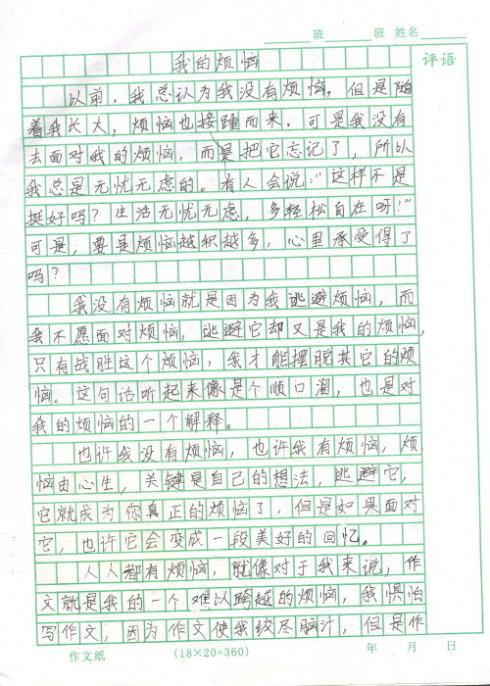 班 班 姓名
评语
我的烦恼
以前，我总认为我没有烦恼，但是随
着我长大，烦恼也接踵而来，可是我没有
去面对我的烦恼，而是把它忘记了，所以
我总是无忧无虑的。有人会说："这样不是
挺好吗？生活无忧无虑，多轻松自在呀！"
可是，要是烦恼越积越多，心里承受得了
吗？
我没有烦恼就是因为我逃避烦恼，而
我不愿面对烦恼，逃避它却又是我的烦恼，
只有战胜这个烦恼，我才能摆脱其它的烦
恼。这句话听起来像是个顺口溜，也是对
我的烦恼的一个解释。
也许我没有烦恼，也许我有烦恼，烦
恼由心生，关键是自己的想法，逃避它，
它就成为你真正的烦恼了，但是如果面对
它，也许它会变成一段美好的回忆。
人人都有烦恼，就像对于我来说，作
文就是我的一个难以跨越的烦恼，我惧怕
写作文，因为作文使我绞尽脑汁，但是作
作文纸 (18×20=360) 年 月 日